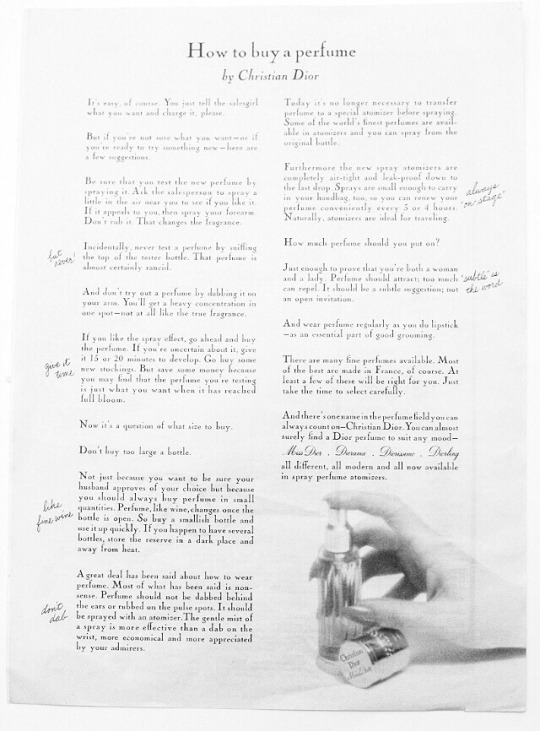 How to buy a perfume
by Christian Dior
It's easy, of course. You just tell the salesgirl
what you want and charge it, please.
But if you're not sure what you want—or if
you're ready to try something new—here are
a few suggestions.
Be sure that you test the new perfume by
spraying it. Ask the salesperson to spray a
little in the air near you to see if you like it.
If it appeals to you, then spray your forearm.
Don't rub it. That changes the fragrance.
but never!
Incidentally, never test a perfume by sniffing
the top of the tester bottle. That perfume is
almost certainly rancid.
And don't try out a perfume by dabbing it on
your arm. You'll get a heavy concentration in
one spot—not at all like the true fragrance.
If you like the spray effect, go ahead and buy
the perfume. If you're uncertain about it, give
it 15 or 20 minutes to develop. Go buy some
new stockings. But save some money because
you may find that the perfume you're testing
is just what you want when it has reached
full bloom.
give it
time
Now it's a question of what size to buy.
Don't buy too large a bottle.
Not just because you want to be sure your
husband approves of your choice but because
you should always buy perfume in small
quantities. Perfume, like wine, changes once the
bottle is open. So buy a smallish bottle and
use it up quickly. If you happen to have several
bottles, store the reserve in a dark place and
away from heat.
like
fine wine
A great deal has been said about how to wear
perfume. Most of what has been said is non-
sense. Perfume should not be dabbed behind
the ears or rubbed on the pulse spots. It should
be sprayed with an atomizer. The gentle mist of
a spray is more effective than a dab on the
wrist, more economical and more appreciated
by your admirers.
don't
dab
Today it's no longer necessary to transfer
perfume to a special atomizer before spraying.
Some of the world's finest perfumes are avail-
able in atomizers and you can spray from the
original bottle.
Furthermore the new spray atomizers are
completely air-tight and leak-proof down to
the last drop. Sprays are small enough to carry
in your handbag, too, so you can renew your
perfume conveniently every 3 or 4 hours.
Naturally, atomizers are ideal for traveling.
always
"on stage"
How much perfume should you put on?
Just enough to prove that you're both a woman
and a lady. Perfume should attract; too much
can repel. It should be a subtle suggestion; not
an open invitation.
"subtle" is
the word
And wear perfume regularly as you do lipstick
—as an essential part of good grooming.
There are many fine perfumes available. Most
of the best are made in France, of course. At
least a few of these will be right for you. Just
take the time to select carefully.
And there's one name in the perfume field you can
always count on—Christian Dior. You can almost
surely find a Dior perfume to suit any mood—
Miss Dior . Diorama . Diorissimo . Diorling
all different, all modern and all now available
in spray perfume atomizers.
Christian
Dior